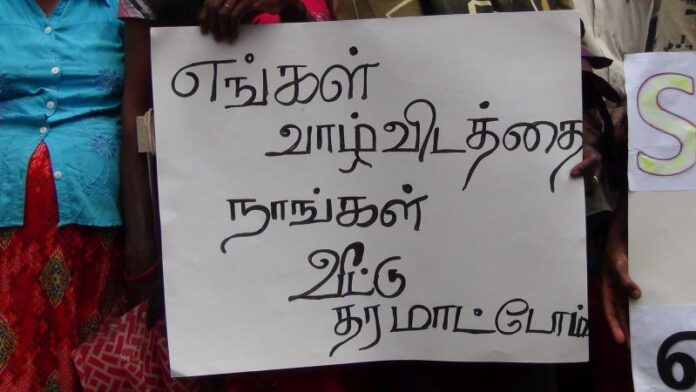 எங்கள்
வாழ்விடத்தை
நாங்கள்
வீட்டு
தரமாட்டோம்
S